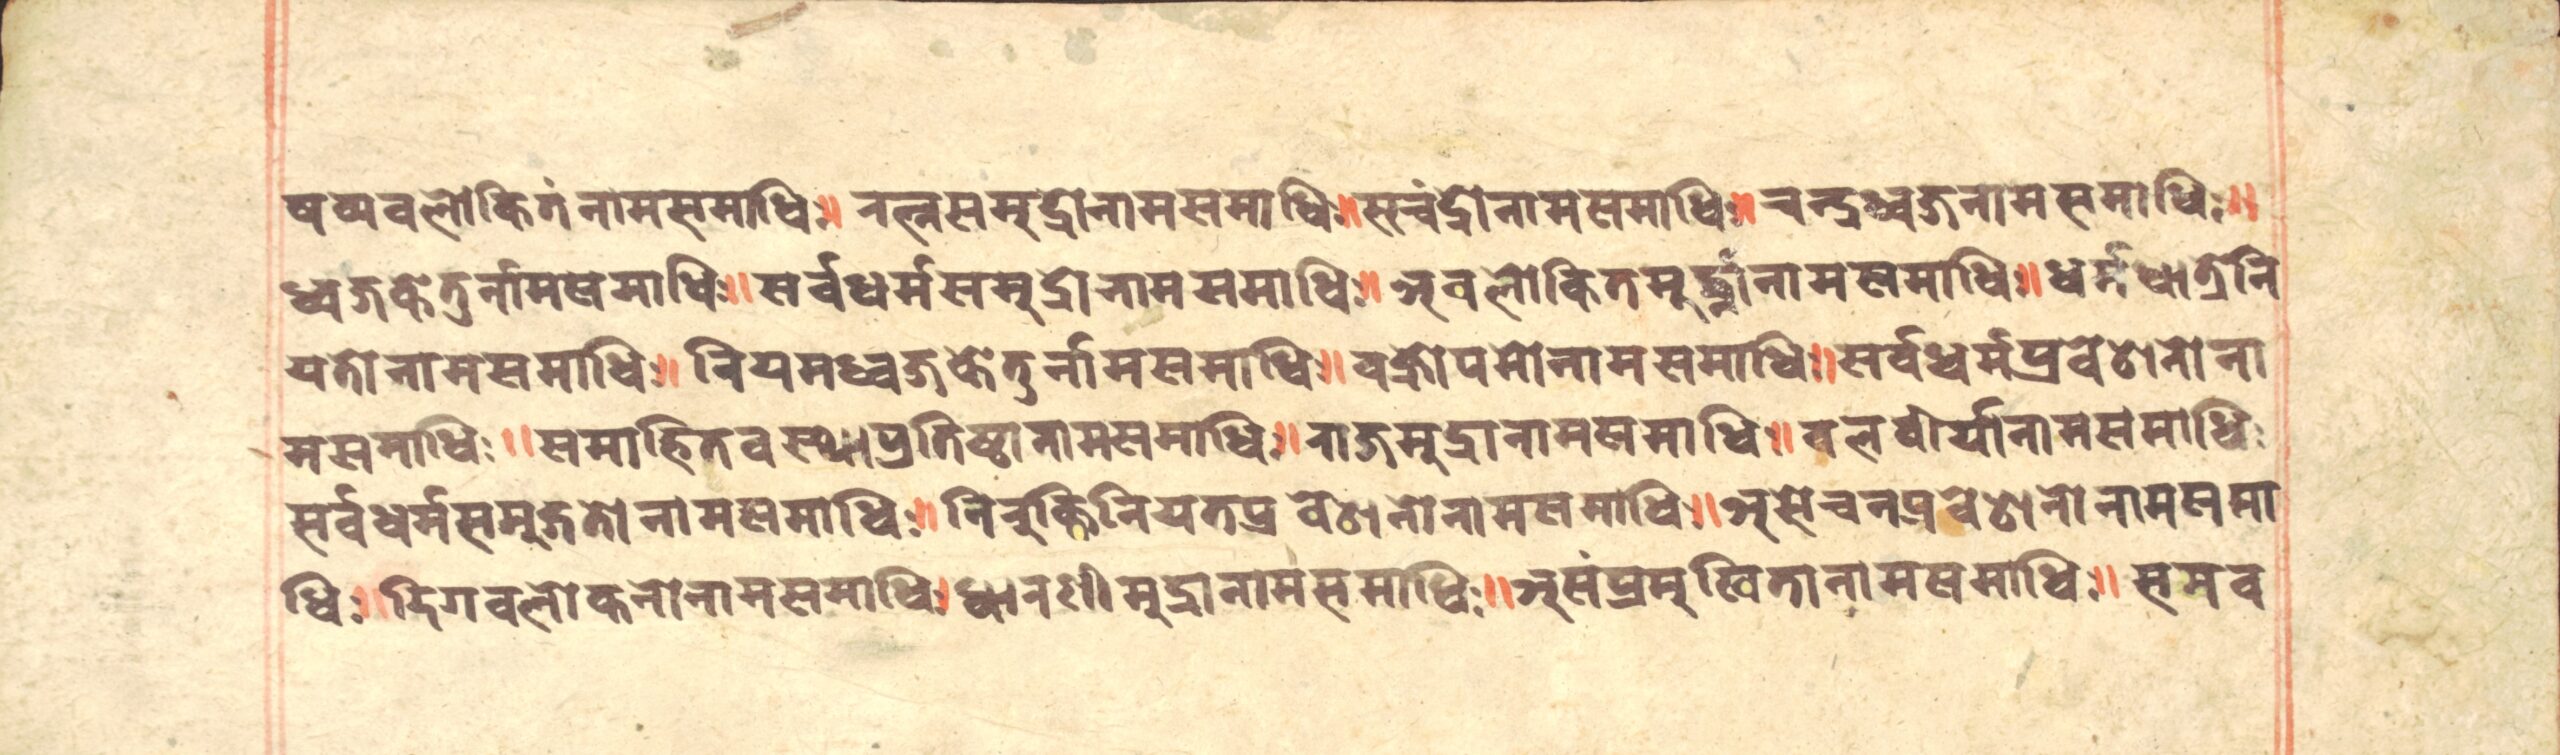 षव्यवलोकितं नामसमाधिः॥ रत्नसमुद्रोनामसमाधिः॥सचंद्रोनामसमाधिः॥चन्द्रध्वजनामसमाधिः॥
ध्वजकेतुर्नामसमाधिः॥सर्वधर्मसमुद्रोनामसमाधिः॥अवलोकितमूर्द्धानामसमाधिः॥धर्मधात्रेनि
यतोनामसमाधिः॥ नियमध्वजकेतुर्नामसमाधिः॥वज्रोपमोनामसमाधिः॥सर्वधर्मप्रवेशेनोना
मसमाधिः॥समाहितवस्थाप्रतिष्ठानामसमाधिः॥राजमुद्रानामसमाधिः॥वलवीर्यानामसमाधिः
सर्वधर्मसमुद्गतोनामसमाधिः॥निरुक्तिनियतप्रवेशेनोनामसमाधिः॥असेचनप्रवेशेनोनामसमा
धिः॥दिगवलोकनोनामसमाधिः।ध्वानश्रीमुद्रानामसमाधिः॥असंप्रमुखितानामसमाधिः॥ समव